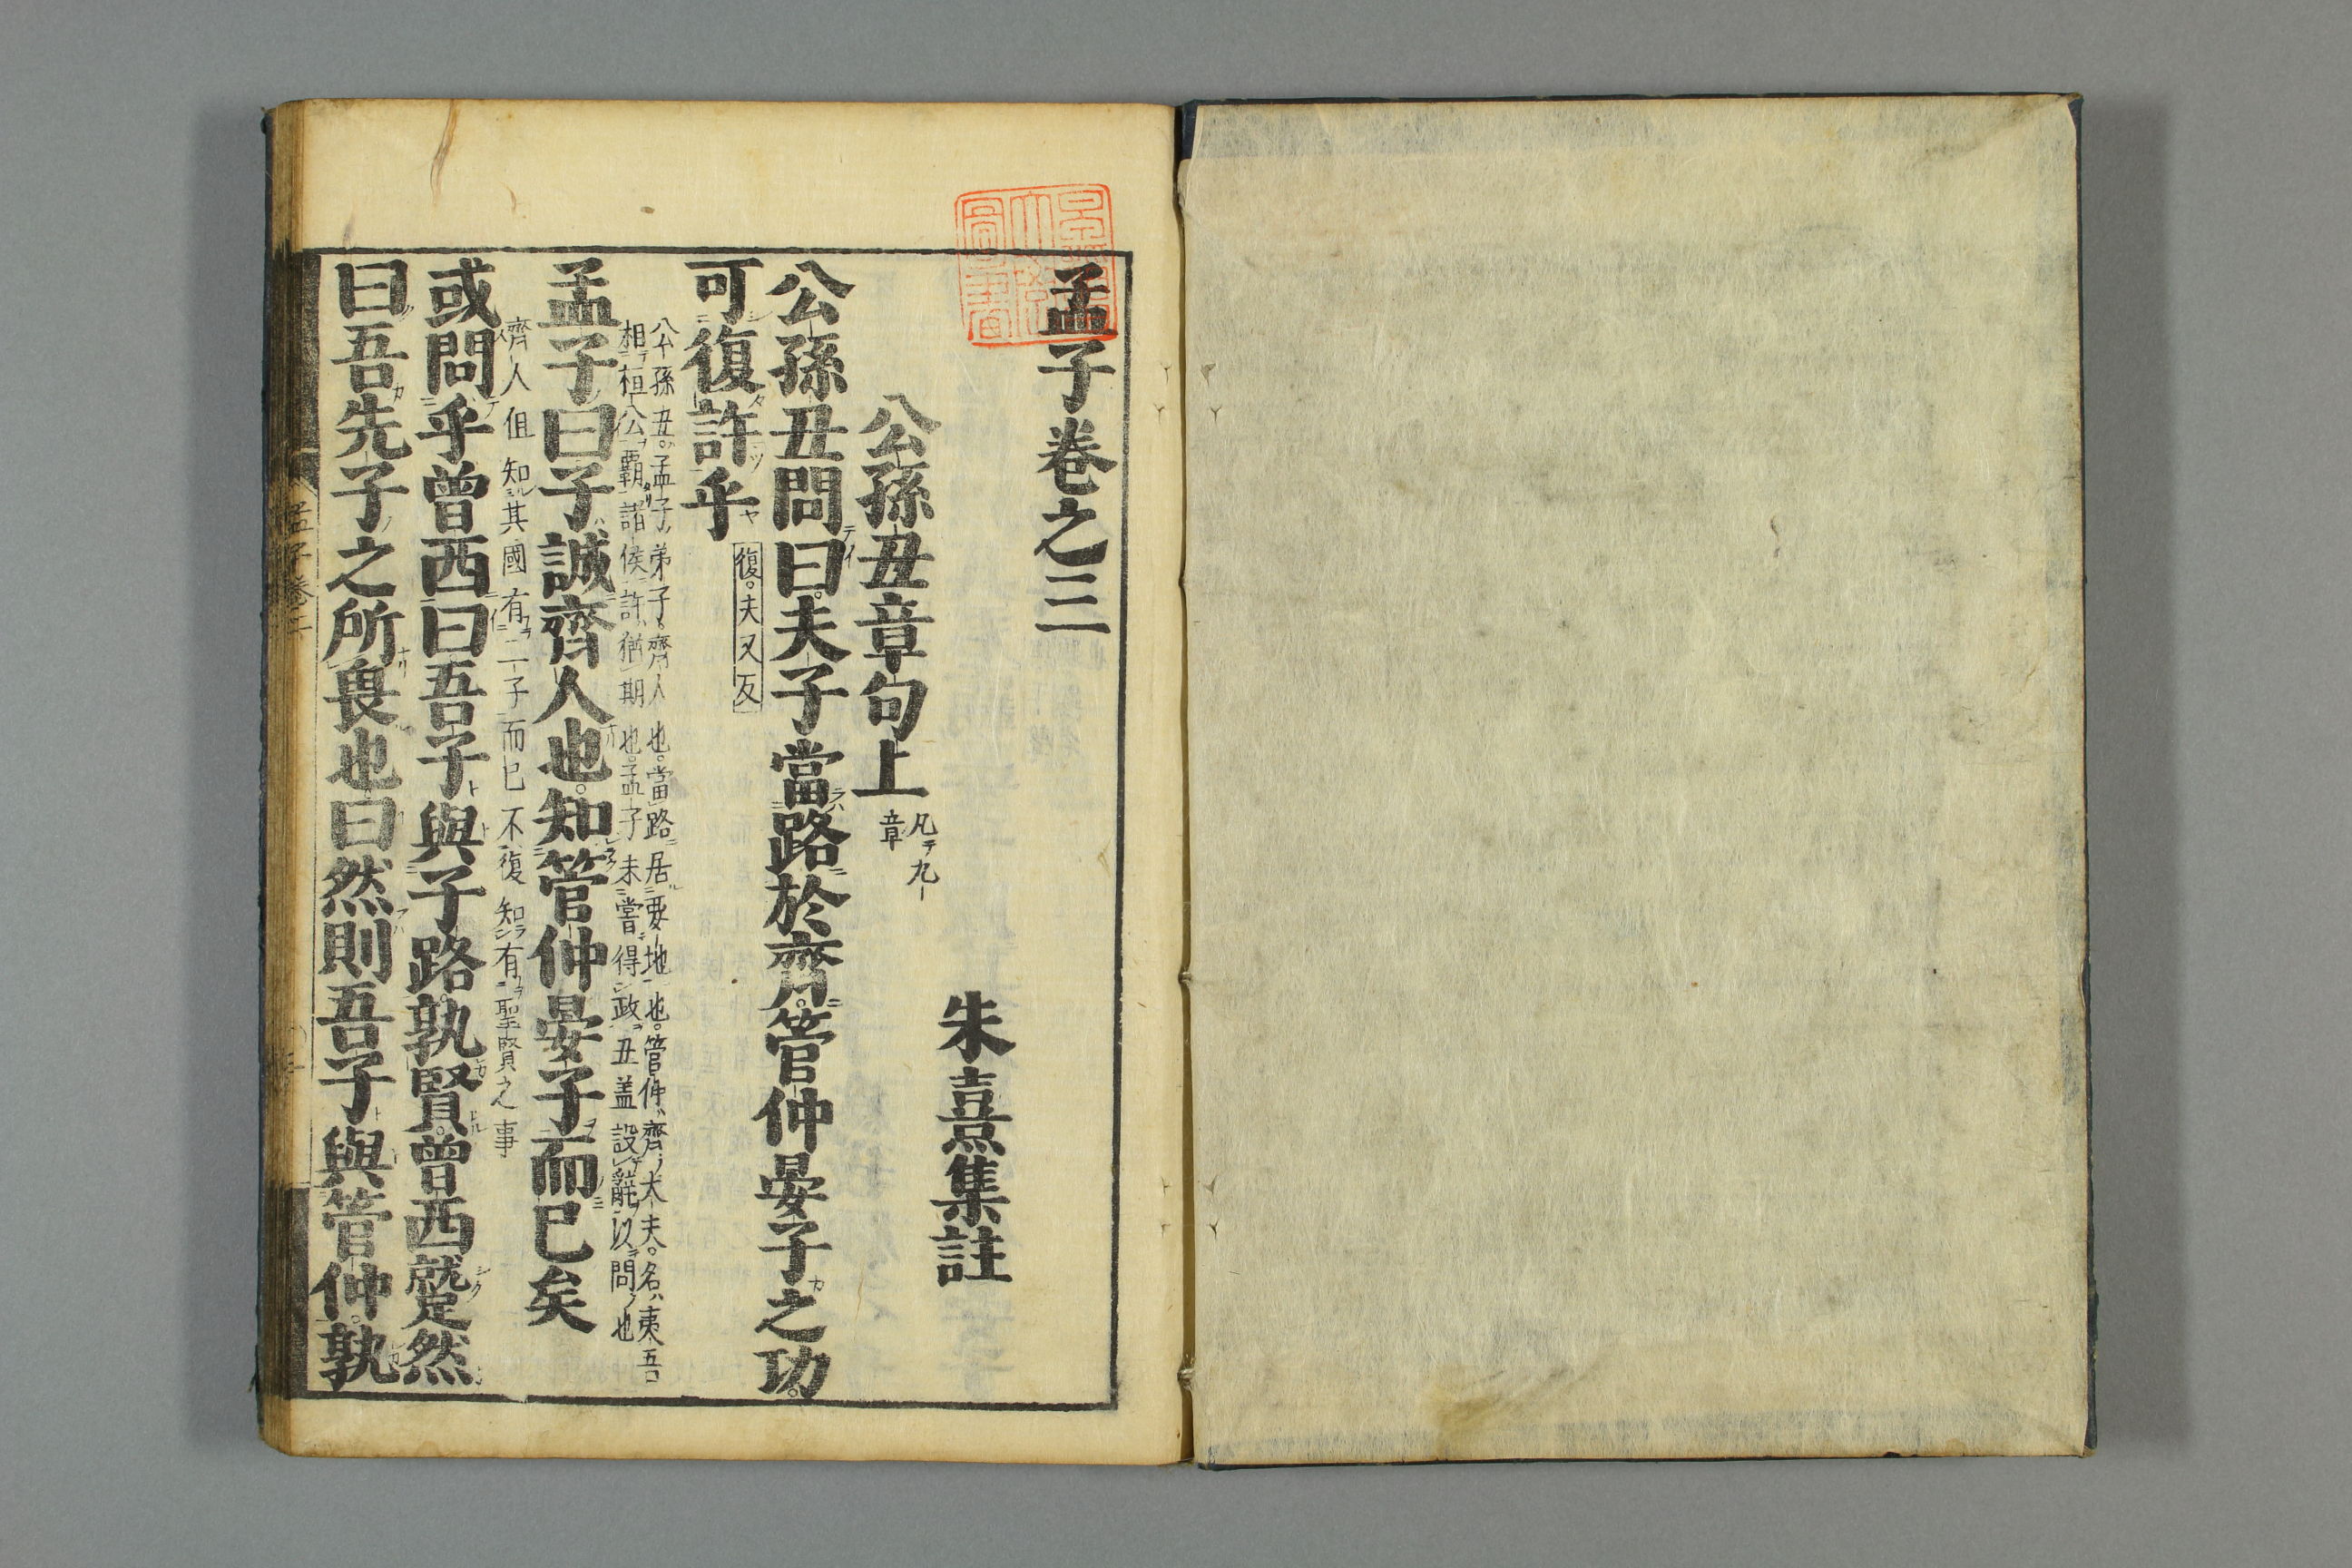 孟子卷之三
朱熹集註
公孫丑章句上
凡テ九
章
公孫丑問曰。夫子當路於齊。管仲晏子之功。
可復許乎
復。夫又反
公孫丑。孟子弟子。齊人也。當路居要地也。管仲齊大夫。名夷吾
相桓公霸諸侯許猶期也。孟子未嘗得政丑盖設辭以問也
孟子曰子誠齊人也。知管仲晏子而已矣
齊人但知其國有二子而已不復知有聖賢之事
或問乎曾西曰吾子與子路孰賢。曾西蹵然
曰吾先子之所畏也曰然則吾子與管仲。孰
孟子卷三